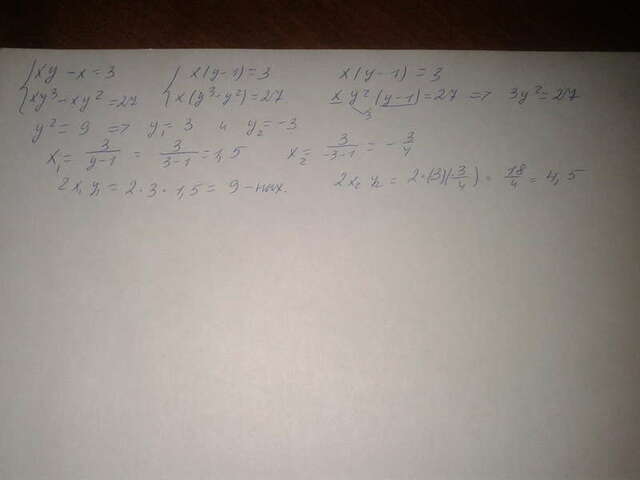 {xy - x = 3 { x(y-1) = 3 x(y-1) = 3
{xy³ - xy² = 27 { x(y³-y²) = 27 x y² (y-1) = 27 => 3y² = 27
3
y² = 9 => y₁ = 3 и y₂ = -3
x₁ = 3/(y-1) = 3/(3-1) = 1,5 x₂ = 3/(-3-1) = -3/4
2x₁y₁ = 2·3·1,5 = 9 - max. 2x₂y₂ = 2·(3)(3/4) = 18/4 = 4,5